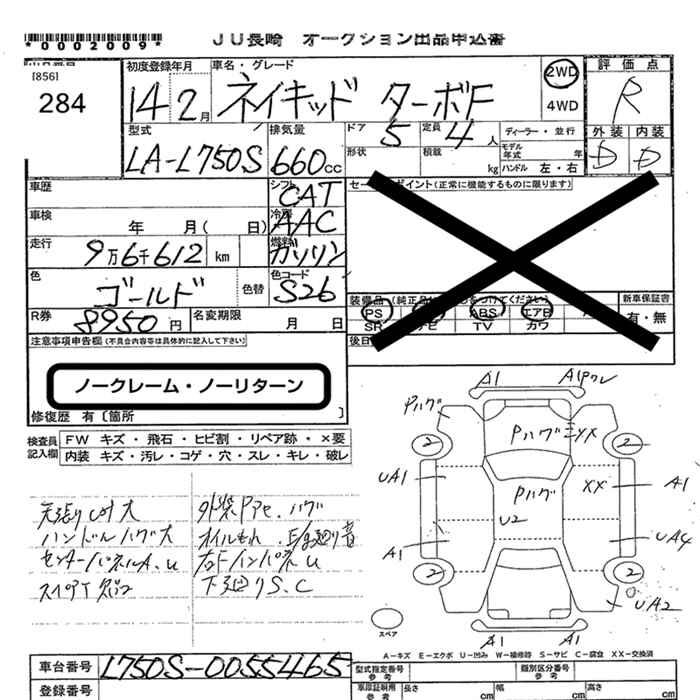 *0002009*
JU長崎 オークション出品申込書
[856]
284
初度登録年月
14年2月
車名・グレード
ネイキッド ターボF
2WD
4WD
評価点
R
外装 内装
D D
型式
LA-L750S
排気量
660cc
ドア
5
定員
4人
形状
積載
kg
ディーラー・並行
モデル年式 年
ハンドル 左・右
車歴
シフト
CAT
車検
年 月( 日)
冷房
AAC
走行
9万6千612 km
燃料
ガソリン
色
ゴールド
色替
色コード
S26
R券
8950円
名変期限
月 日
ポイント(正常に機能するものに限ります)
装備品(純正品
をつけてください)
PS ABS エアB
SR ナビ TV カワ
新車保証書
有・無
注意事項申告欄(不具合内容等は具体的に記入して下さい)
ノークレーム・ノーリターン
修復歴 有〔箇所 〕
検査員記入欄
FW キズ・飛石・ヒビ割・リペア跡・×要
内装 キズ・汚レ・コゲ・穴・スレ・キレ・破レ
ハンドルハゲ大
センターパネルA.U
外装Pアセ.ハゲ
オイルもれ
右Fインパネ U
下廻りS.C
A1 A1Pワレ
Pハゲ
Pハゲ XX
2 2
UA1 Pハゲ XX A1
U2
A1 UA4
2 2
UA2
スペア
A1 A1
A－キズ E－エクボ U－凹み W－補修跡 S－サビ C－腐食 XX－交換済
車台番号
L750S-0055465
登録番号
型式指定番号
参考
類別区分番号
参考
車庫証明用
参考
長さ cm
幅 cm
高さ cm